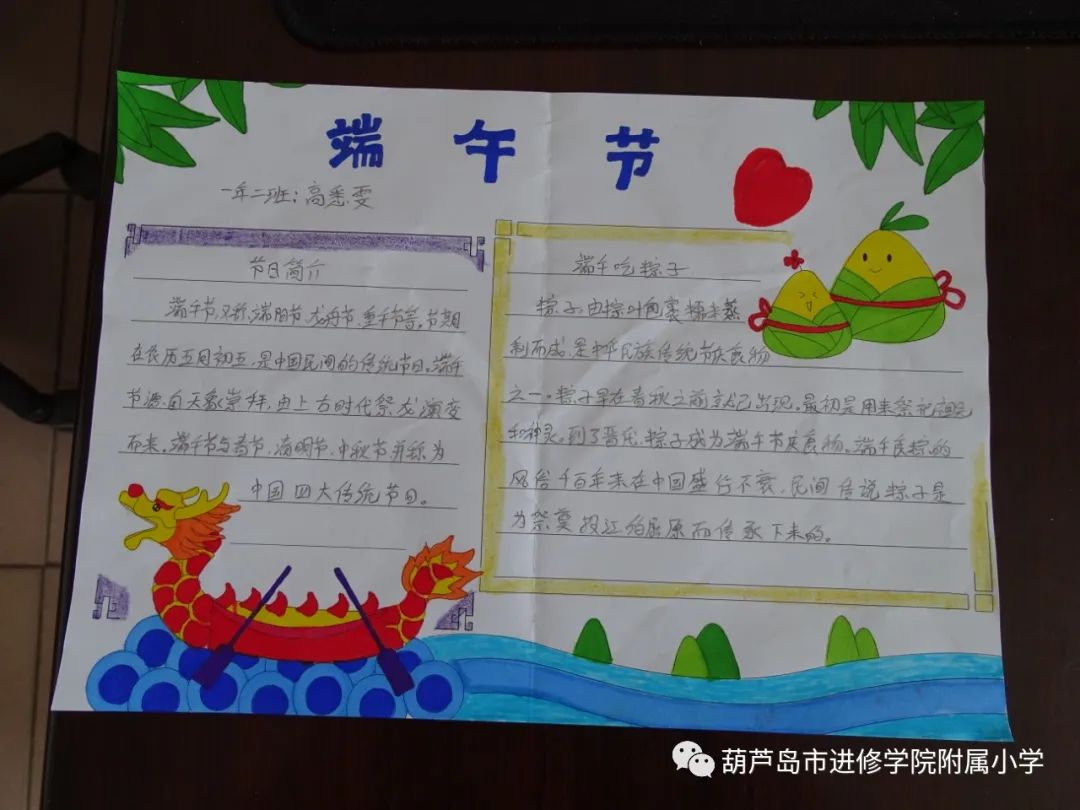 端午节
一年二班：高悉雯
节日简介
端午节，又称端阳节、龙舟节、重午节等。节期
在农历五月初五，是中国民间的传统节日。端午
节源自天象崇拜，由上古时代祭龙演变
而来。端午节与春节、清明节、中秋节并称为
中国四大传统节日。
端午吃粽子
粽子由粽叶包裹糯米蒸
制而成，是中华民族传统节庆食物
之一。粽子早在春秋之前就已出现。最初是用来祭祀祖先
和神灵。到了晋代，粽子成为端午节庆食物。端午食粽的
风俗千百年来在中国盛行不衰，民间传说粽子是
为祭奠投江的屈原而传承下来的。
葫芦岛市进修学院附属小学